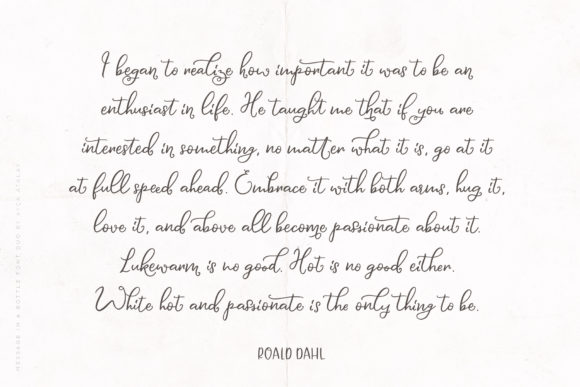 I began to realize how important it was to be an
enthusiast in life. He taught me that if you are
interested in something, no matter what it is, go at it
at full speed ahead. Embrace it with both arms, hug it,
love it, and above all become passionate about it.
Lukewarm is no good. Hot is no good either.
White hot and passionate is the only thing to be.
ROALD DAHL
MESSAGE IN A BOTTLE FONT DUO BY